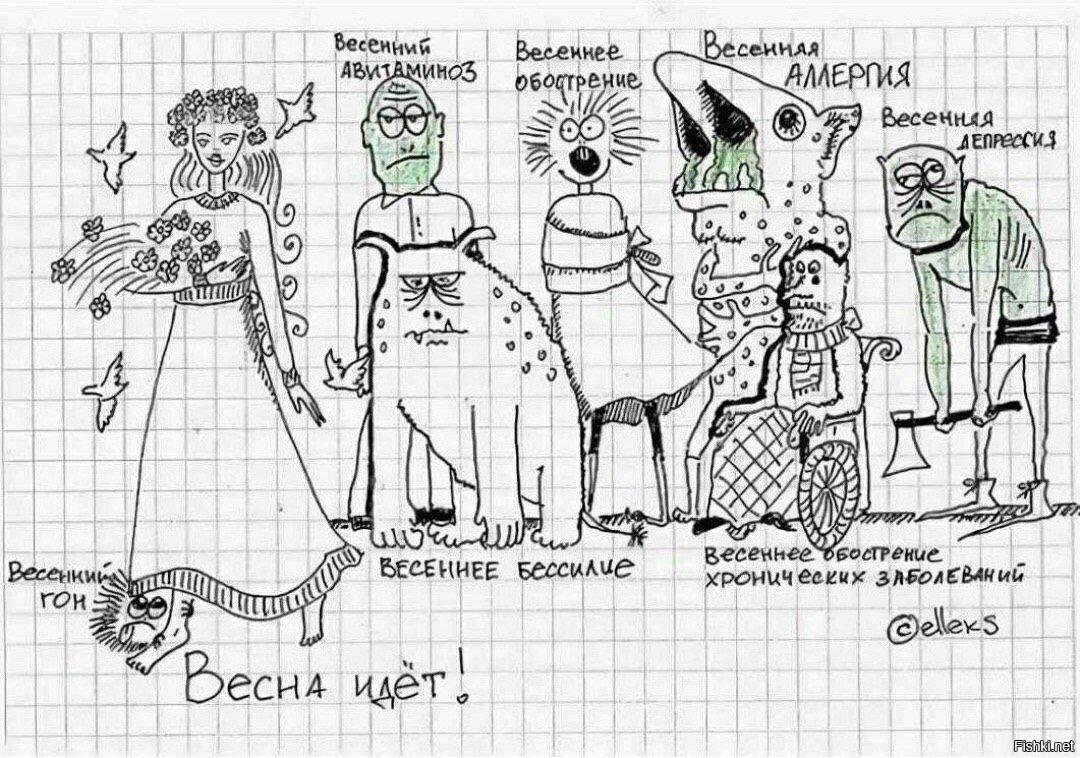 Весенний
АВИТАМИНОЗ
Весеннее
обострение
Весенняя
АЛЛЕРГИЯ
Весенняя
ДЕПРЕССИЯ
Весенний
ГОН
ВЕСЕННЕЕ БЕССИЛИЕ
Весеннее обострение
хронических заболеваний
©elleks
Весна идёт!
Fishki.net